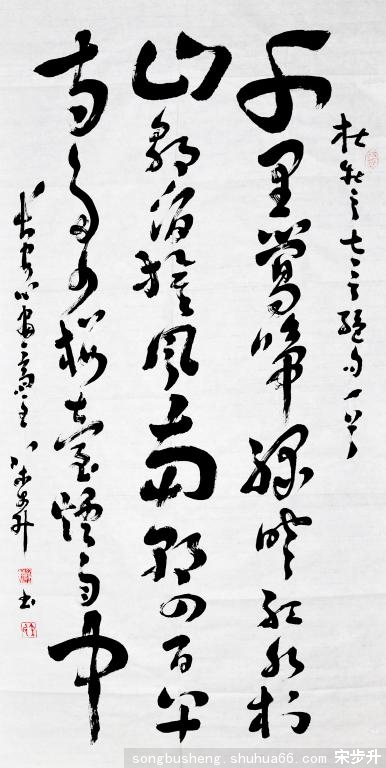 杜牧之七言絕句一首
千里鶯啼綠映紅水村
山郭酒旗風南朝四百八十
寺多少樓臺煙雨中
長安 齋主 宋步升 书
songbusheng.shuhua66.com 宋步升